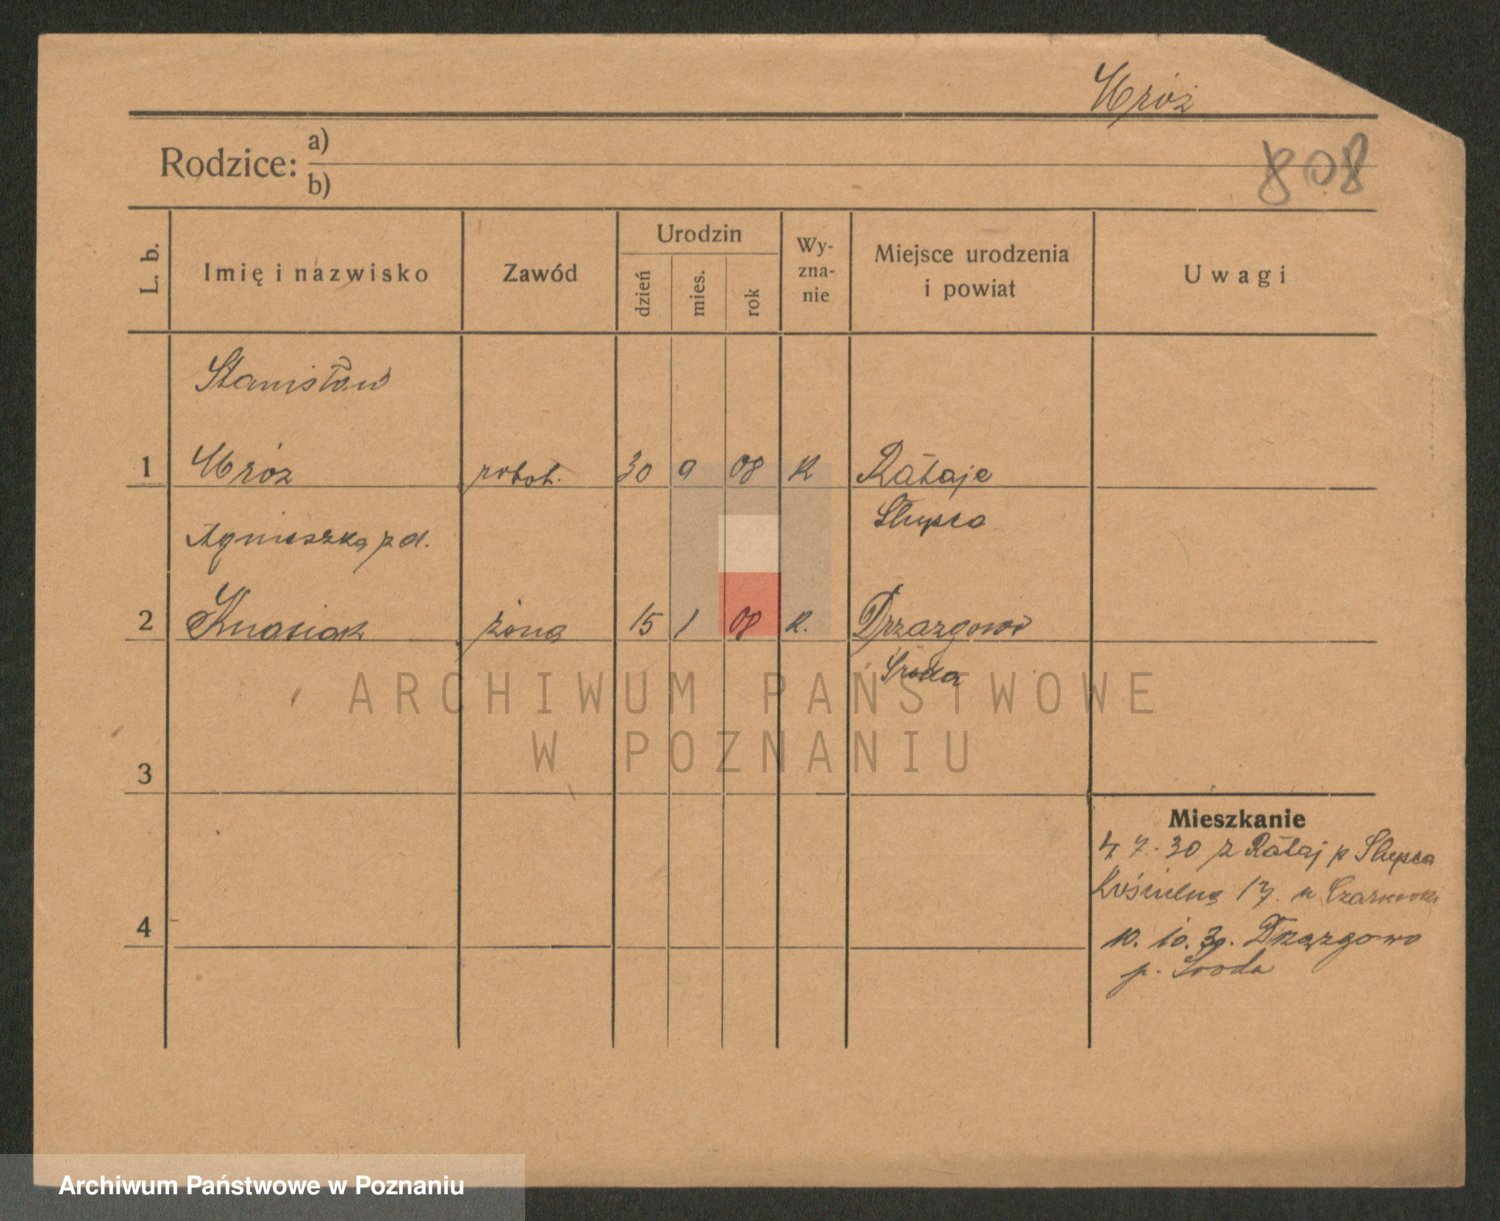 Mróz
Rodzice: a)
b)
808
L. b.
Imię i nazwisko
Zawód
Urodzin
dzień
mies.
rok
Wy-
zna-
nie
Miejsce urodzenia
i powiat
Uwagi
Stanisław
1 Mróz robot. 30 9 08 K Rataje
Słupca
Agnieszka z d.
2 Knasiak żona 15 1 08 K. Drzazgowo
Środa
3
4
Mieszkanie
4 7. 30 z Rataj p Słupca
Kościelna 17. u Czarnecki
10. 10. 30. Drzązgowo
p. Środa
ARCHIWUM PAŃSTWOWE
W POZNANIU
Archiwum Państwowe w Poznaniu